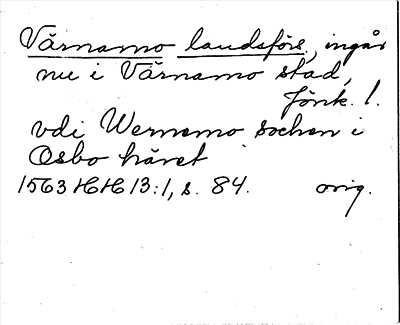 Värnamo landsförs., ingår
nu i Värnamo stad,
Jönk. l.
vdi Wernemo sochen i
Osbo häret
1563 HH 13:1, s. 84. orig.